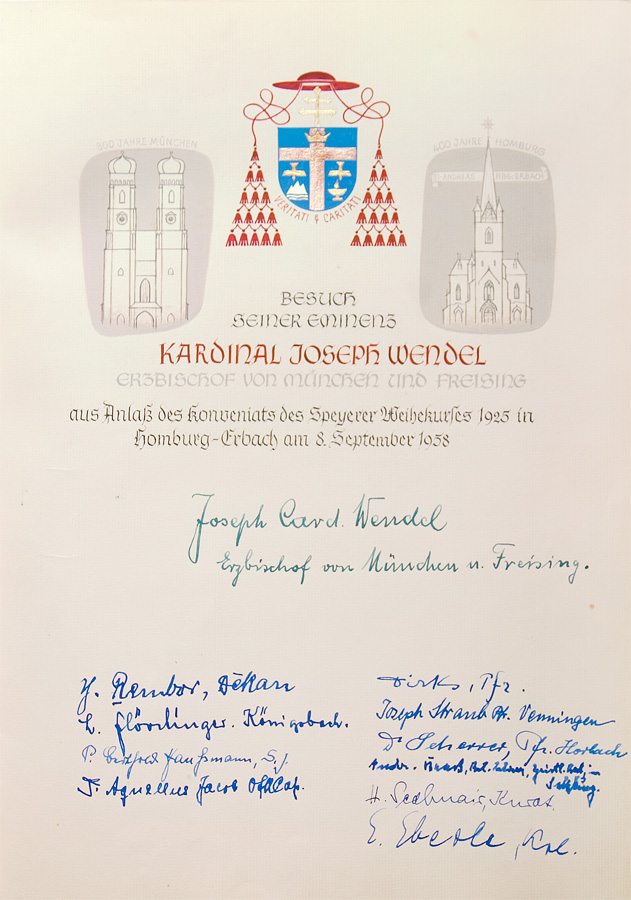 800 JAHRE MÜNCHEN
400 JAHRE HOMBURG
ST. ANDREAS HBG.-ERBACH
VERITATI & CARITATI
BESUCH
SEINER EMINENZ
KARDINAL JOSEPH WENDEL
ERZBISCHOF VON MÜNCHEN UND FREISING
aus Anlaß des Konveniats des Speyerer Weihekurses 1925 in
Homburg-Erbach am 8. September 1958
Joseph Card. Wendel
Erzbischof von München u. Freising.
Rembor, Dekan
Königsbach.
P. Berthold S.J.
P. Aquilius Jacob OFMCap.
Dirks, Pfr.
Joseph Straub Pfr. Venningen
Dr Scherrer, Pfr. Horbach
Andr.
H. Seelmair, Kurat.
E. Eberle,